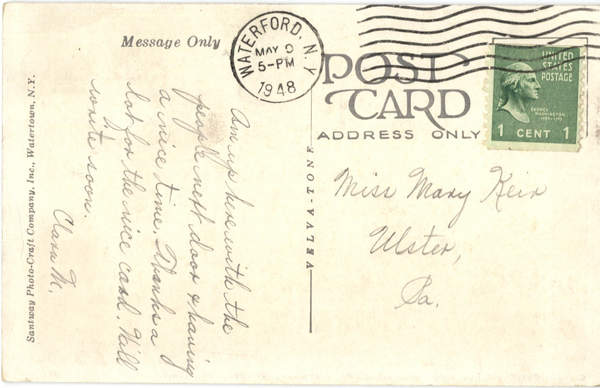 Message Only
WATERFORD, N.Y.
MAY
5-PM
1948
POST
CARD
ADDRESS ONLY
UNITED
STATES
POSTAGE
GEORGE
WASHINGTON
1 CENT 1
Am up here with the
people next door & having
a nice time. Thanks a
lot for the nice card. Will
write soon.
Clara M.
Miss Mary Keir
Ulster,
Pa.
VELVA-TONE
Santway Photo-Craft Company, Inc., Watertown, N.Y.